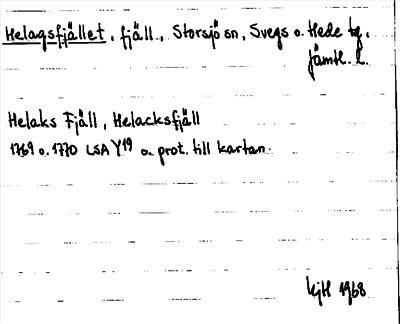 Helagsfjället, fjäll, Storsjö sn, Svegs o. Hede tg,
Jämtl. l.
Helaks Fjäll, Helacksfjäll
1769 o. 1770 LSA Y19 o. prot. till kartan.
KjH 1968